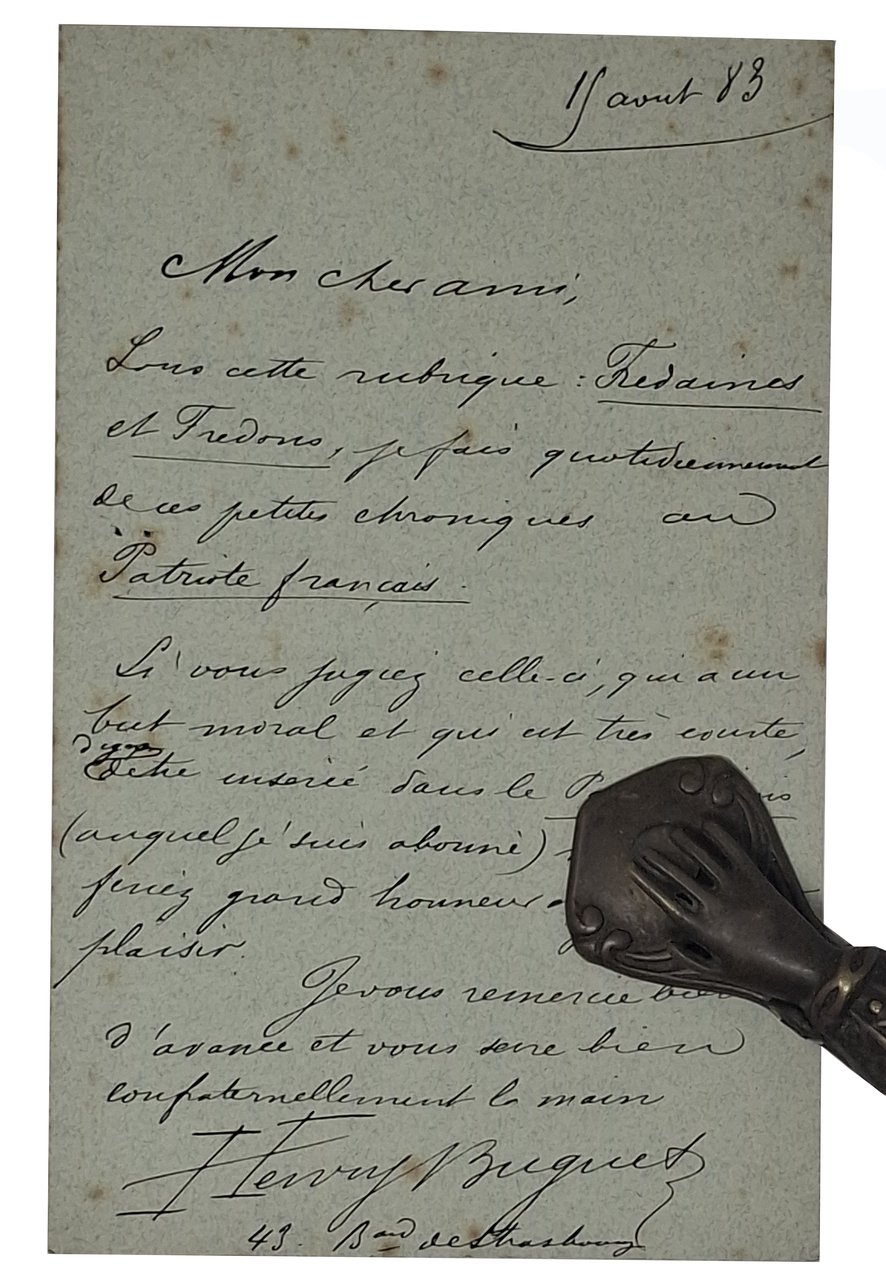 15 aout 83
Mon cher ami,
Sous cette rubrique : Fredaines
et Fredons, je fais quotidiennement
de ces petites chroniques au
Patriote français.
Si vous jugiez celle-ci, qui a un
but moral et qui est très courte,
digne
d'être inserée dans le
(auquel je suis abonné)
feriez grand honneur
plaisir.
Je vous remercie bien
d'avance et vous serre bien
confraternellement la main
Henry Buguet
43. Bard de Strasbourg